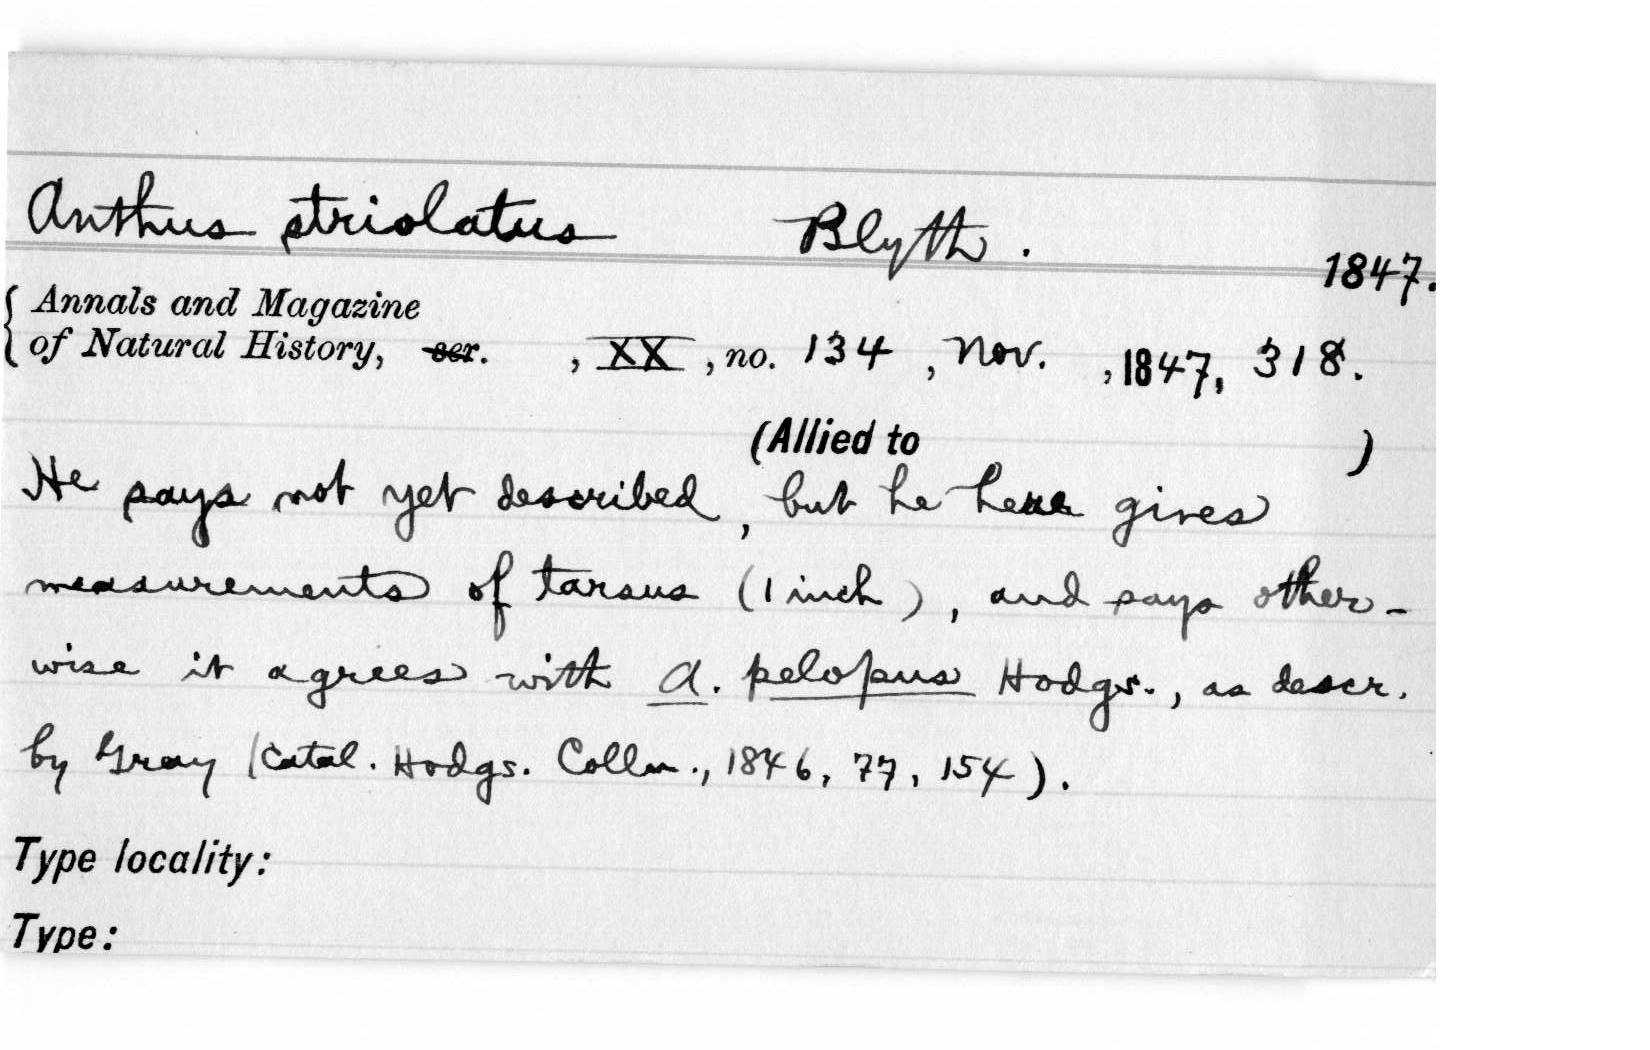 Anthus striolatus Blyth.
1847.
Annals and Magazine
of Natural History, ser. , XX , no. 134 , Nov. , 1847, 318.
(Allied to )
He says not yet described, but he here gives
measurements of tarsus (1 inch), and says other-
wise it agrees with A. pelopus Hodgs., as descr.
by Gray (Catal. Hodgs. Colln., 1846, 77, 154).
Type locality:
Type: